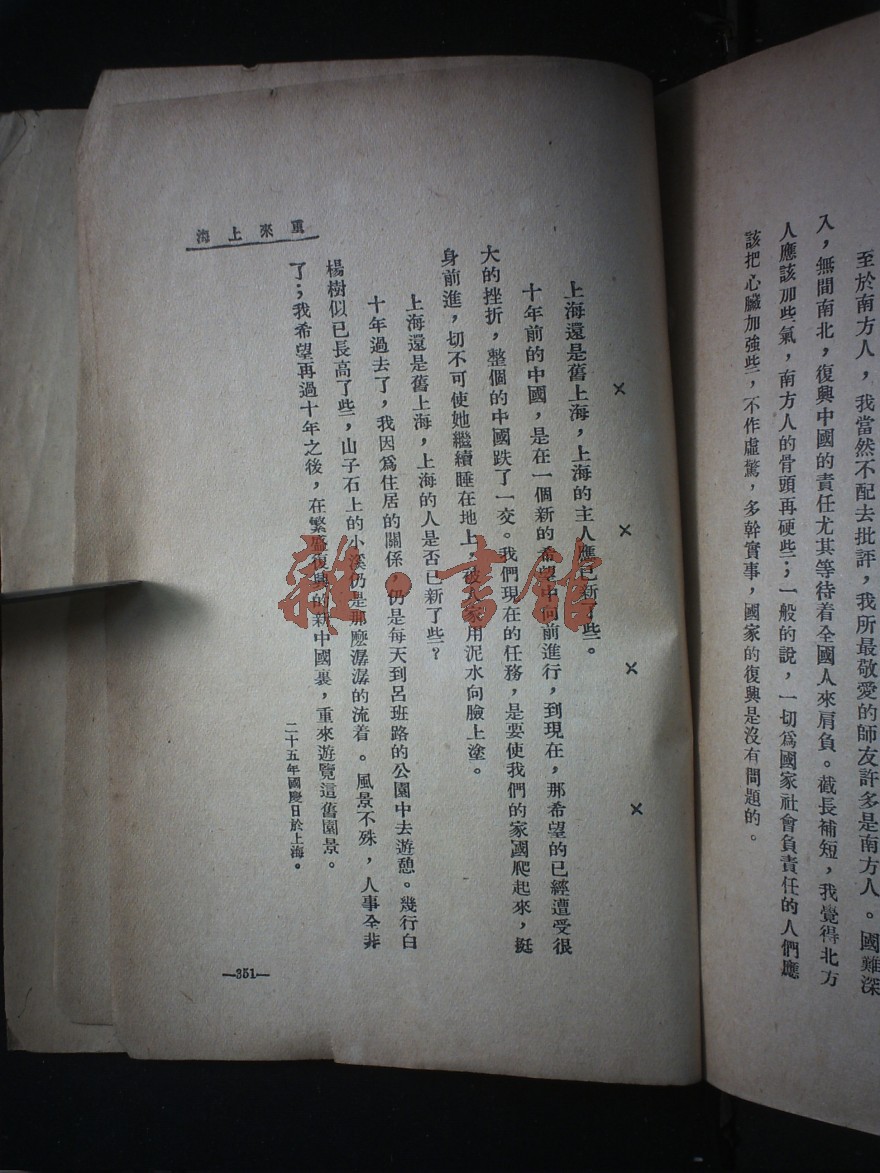 至於南方人，我當然不配去批評，我所最敬愛的師友許多是南方人。國難深
入，無間南北，復興中國的責任尤其等待着全國人來肩負。截長補短，我覺得北方
人應該加些氣，南方人的骨頭再硬些；一般的說，一切爲國家社會負責任的人們應
該把心臟加強些，不作虛驚，多幹實事，國家的復興是沒有問題的。
×　×　×　×
上海還是舊上海，上海的主人應已新了些。
十年前的中國，是在一個新的希望中向前進行，到現在，那希望的已經遭受很
大的挫折，整個的中國跌了一交。我們現在的任務，是要使我們的家國爬起來，挺
身前進，切不可使她繼續睡在地上，被人家用泥水向臉上塗。
上海還是舊上海，上海的人是否已新了些？
十年過去了，我因爲住居的關係，仍是每天到呂班路的公園中去遊憩。幾行白
楊樹似已長高了些，山子石上的小溪仍是那麽潺潺的流着。風景不殊，人事全非
了；我希望再過十年之後，在繁盛復興的新中國裏，重來遊覽這舊園景。
二十五年國慶日於上海。
重來上海
—351—
雜·書館